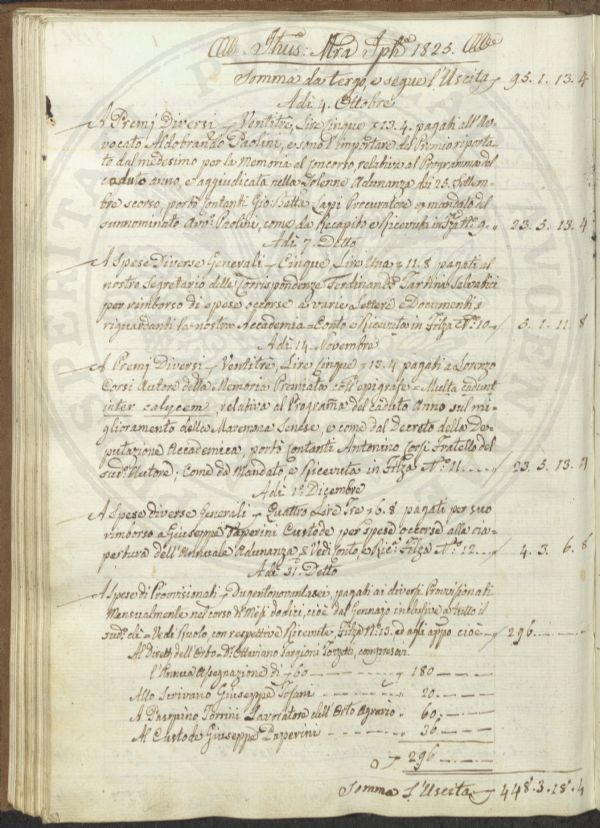 Jhus: Mra Jph 1823.
Somma da tergo, e segue l'Uscita 95. 1. 13. 4
Adi 4. Ottobre
A Premj Diversi Ventitrè, Lire Cinque 13. 4. pagati all'Av-
vocato Aldobrando Paolini, e sono l'importare del Premio riporta-
to dal medesimo per la Memoria al Concorso, relativa al Programma del
caduto anno, e aggiudicata nella Solenne Adunanza dei 25. Settem-
bre scorso, portò Contanti Gio: Batta Lapi Procuratore e mandato del
sunnominato Avv. Paolini, come da Recapito e Ricevuta in 9. 23. 5. 13. 4
Adi 7. Detto
A Spese Diverse Generali Cinque Lire Una 11. 8 pagati al
nostro Segretario delle Corrispondenze Ferdinando Tartini Salvatici
per rimborso di spese occorse e varie Lettere e Documenti
riguardanti la nostra Accademia Conto e Ricevuta in Filza N.° 10 5. 1. 11. 8
Adi 14. Novembre
A Premj Diversi Ventitrè, Lire Cinque 13. 4 pagati a Lorenzo
Corsi Autore della Memoria Premiata = l'epigrafe = Multa cadunt
inter calycem, relativa al Programa del Caduto Anno sul mi-
glioramento della Maremma Senese, e come dal decreto della De-
putazione Accademica, portò Contanti Antonino Corsi Fratello del
sud. Autore; Come da Mandato, e Ricevuta in Filza N.° 11. 23. 5. 13. 4
Adi 1.° Dicembre
A Spese diverse Generali Quattro Lire Tre 6. 8 pagati per suo
rimborso a Giuseppe Paperini Custode per spese occorse alla ria-
pertura dell'Annuale Adunanza Vedi Conto, e Ric. Filza N.° 12. 4. 3. 6. 8
Adi 31. Detto
A Spese di Provvisionati Dugentonovantasei, pagati ai diversi Provisionati
Mensualmente nel corso di Mesi dodici, cioè dal Gennaio inclusive a tutto il
sud. di = Vedi Ruolo, con respettive Ricevute, Filza N.° 13. ed agli appo cioè 296
Al Dirett. dell'Orto D. Ottaviano Targioni Tozzetti, compresavi
l'Annua Assegnazione di 60 180
Allo Scrivano Giuseppe Tofani 20
A Paspino Torrini Lavoratore dell'Orto Agrario 60
Al Custode Giuseppe Paperini 36
296
Somma l'Uscita 448. 3. 18. 4